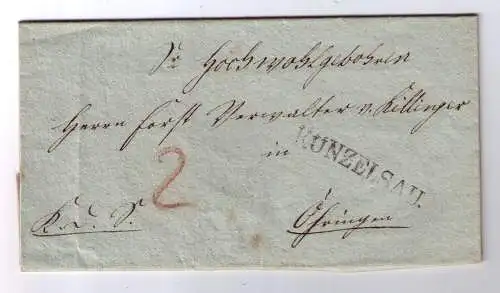 Sr Hochwohlgebohren
Herrn Forst Verwalter v. Killinger
in
KUNZELSAU.
2
K. d. S.
Öhringen